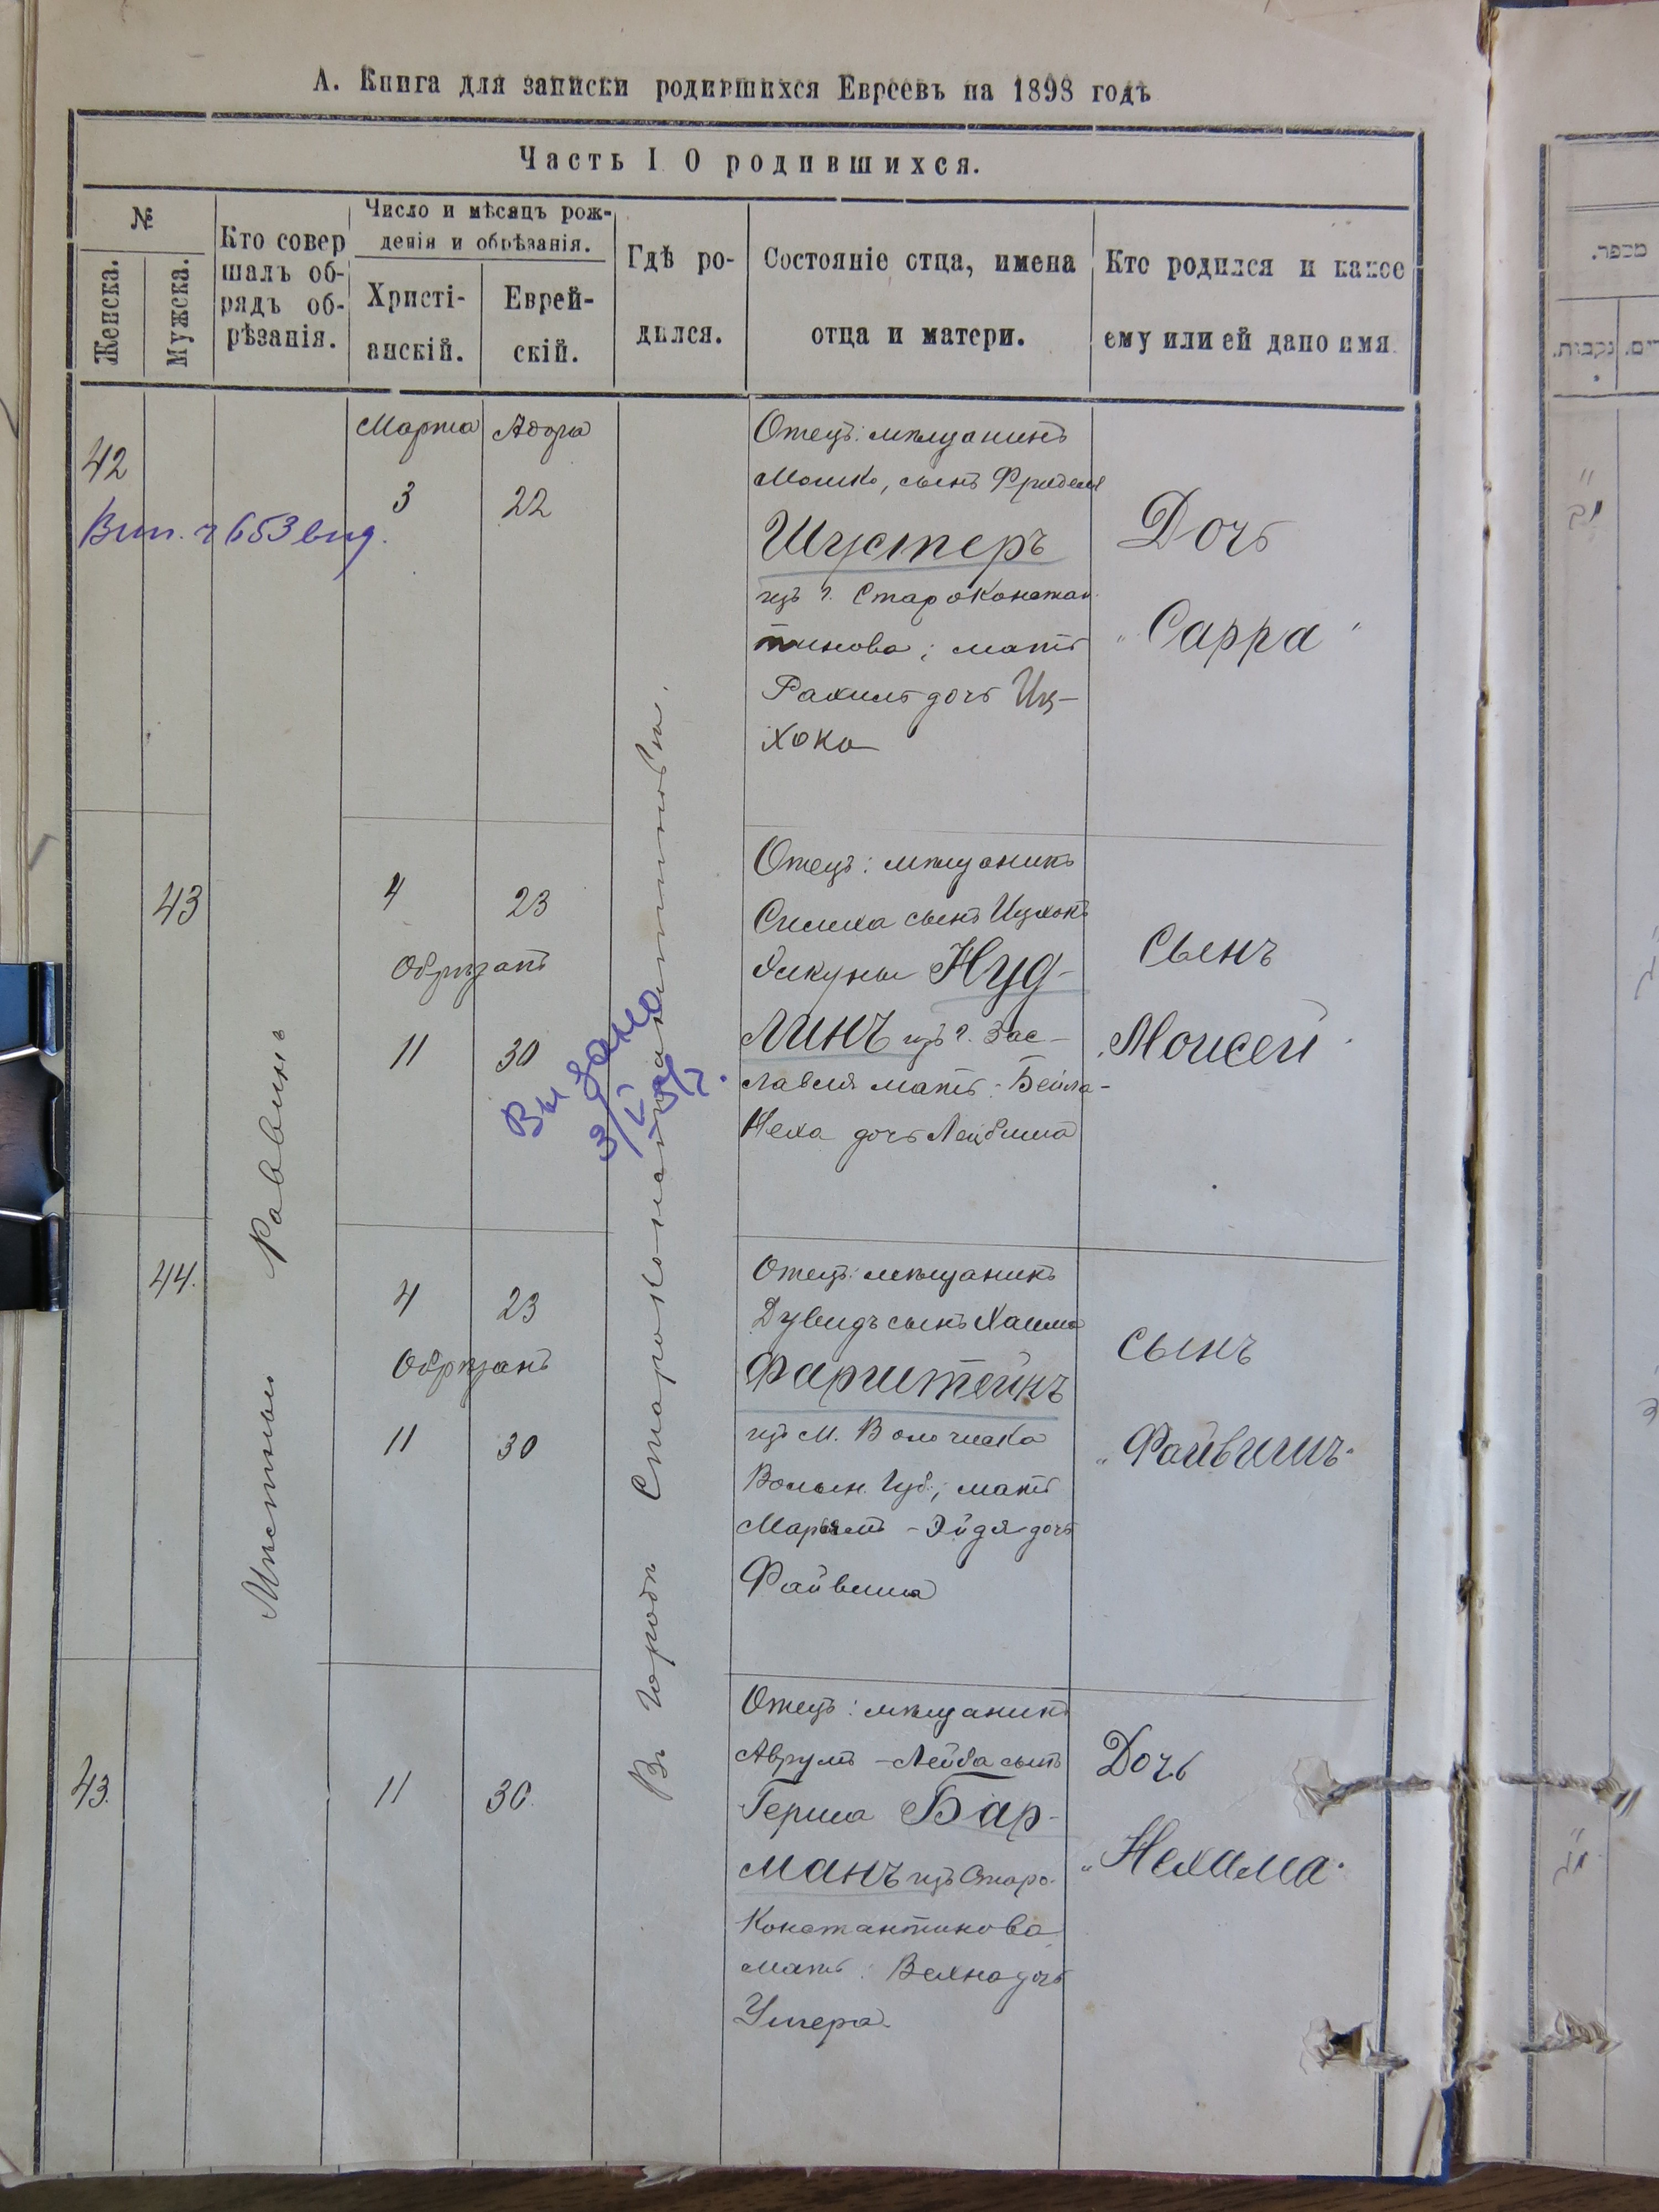 А. Книга для записки родившихся Евреевъ на 1898 годъ
Часть I О родившихся.
№
Женска.
Мужска.
Кто совер
шалъ об-
рядъ об-
рѣзанія.
Число и мѣсяцъ рож-
денія и обрѣзанія.
Христі-
анскій.
Еврей-
скій.
Гдѣ ро-
дился.
Состояніе отца, имена
отца и матери.
Кто родился и какое
ему или ей дано имя.
Мѣстный Раввинъ
Въ городѣ Староконстантиновѣ.
42
Марта
Адора
3
22
Отецъ: мѣщанинъ
Мошко, сынъ Фриделя
Шустеръ
изъ г. Староконстан-
тинова; мать
Рахиль дочь Иц-
хока
Дочь
"Сарра"
43
4
23
Обрѣзанъ
11
30
Выдано
Отецъ: мѣщанинъ
сынъ Ицхокъ
Нуд-
линъ изъ г. Зас-
лавля мать: Бейла-
Неха дочь Лейбиша
Сынъ
"Моисей"
44.
4
23
Обрѣзанъ
11
30
Отецъ: мѣщанинъ
Дувидъ сынъ Хаима
Фарштейнъ
изъ м. Волочиска
Волын. Губ.; мать
Марьямъ-Эйдя дочь
Файвиша
Сынъ
"Файвишъ"
43.
11
30.
Отецъ: мѣщанинъ
Аврумъ-Лейба сынъ
Герша Бар-
манъ изъ Старо-
константинова
мать: Вехна дочь
Ушера.
Дочь
"Нехама"